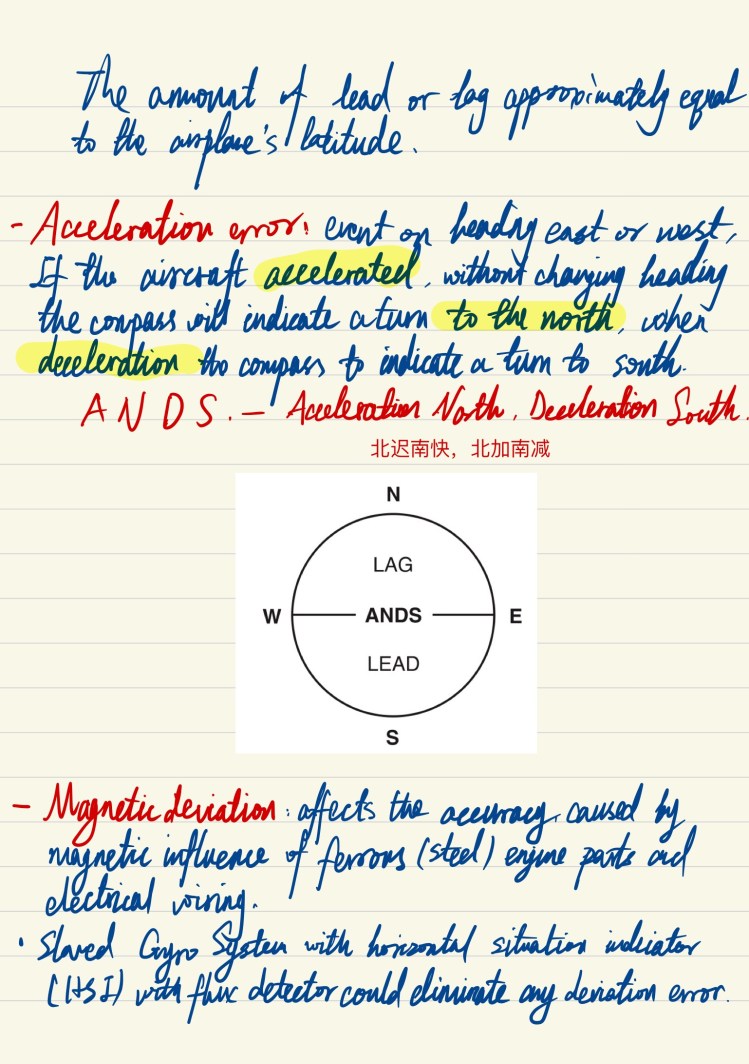 The amount of lead or lag approximately equal
to the airplane's latitude.
- Acceleration error: event on heading east or west,
If the aircraft accelerated, without changing heading
the compass will indicate a turn to the north, when
deceleration the compass to indicate a turn to south.
A N D S. — Acceleration North, Deceleration South.
北迟南快，北加南减
N
LAG
W ANDS E
LEAD
S
- Magnetic deviation: affects the accuracy, caused by
magnetic influence of ferrous (steel) engine parts and
electrical wiring.
• Slaved Gyro System with horizontal situation indicator
(HSI) with flux detector could eliminate any deviation error.